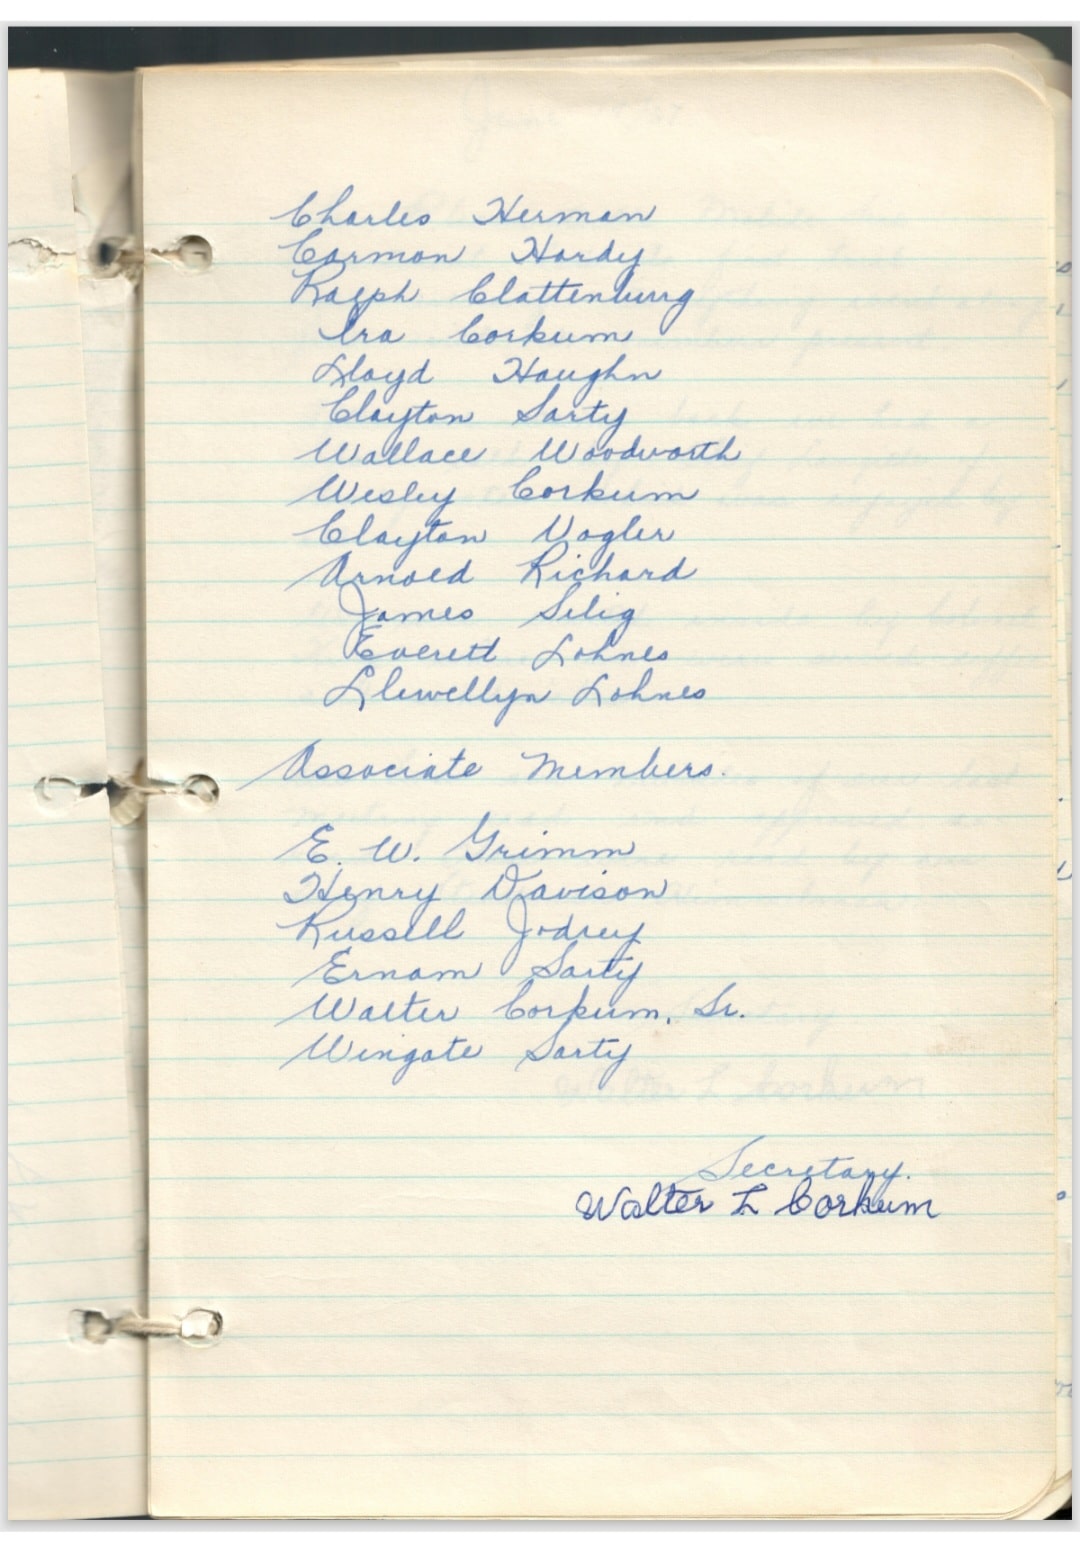 Charles Herman
Carmon Hardy
Ralph Clattenburg
Ira Corkum
Lloyd Haughn
Clayton Sarty
Wallace Woodworth
Wesley Corkum
Clayton Vogler
Arnold Richard
James Selig
Everett Lohnes
Llewellyn Lohnes
Associate Members.
E. W. Grimm
Henry Davison
Russell Jodrey
Ernam Sarty
Walter Corkum, Sr.
Wingate Sarty
Secretary.
Walter L Corkum